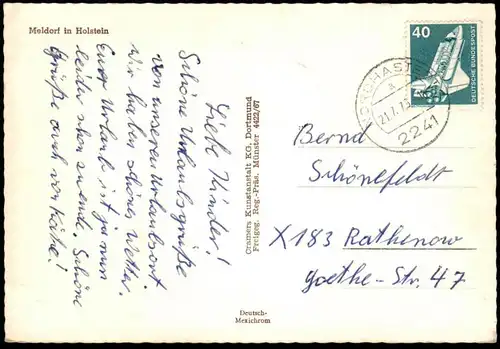 Meldorf in Holstein
Liebe Kinder!
Schöne Urlaubsgrüße
von unserem Urlaubsort
Wir haben schönes Wetter.
Euer Urlaub ist ja nun
leider schon zuende. Schöne
Grüße auch von Käthe!
Cramers Kunstanstalt KG, Dortmund
Freigeg. Reg.-Präs. Münster 4422/67
Deutsch-
Mexichrom
40
DEUTSCHE BUNDESPOST
2241
Bernd
Schönefeldt
X183 Rathenow
Goethe-Str. 47